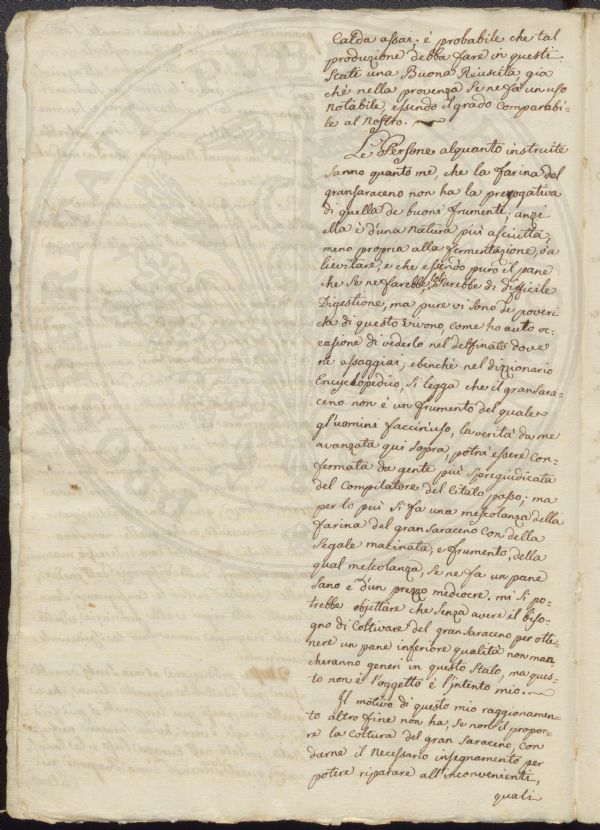 Calda assai; è probabile che tal
produzione debba fare in questi
Stati una Buona Riuscita, gia
chè nella provenza se ne fà un uso
Notabile, essendo il grado Comparabi=
le al Nostro.
Le Persone alquanto instruite
sanno quanto me, che la farina del
gransaraceno non ha la prerogativa
di quella de buoni frumenti; anzi
ella è d'una natura più asciutta,
meno propria alla fermentazione, o a
lievitare, e che essendo puro il pane
che se ne farebbe, sarebbe di difficile
Digestione, ma pure vi sono de poveri
che di questo vivono, come ho auto oc=
casione di vederlo nel delfinato dove
ne assaggiai; e benchè nel dizzionario
Encyclopedico, si legga che il gran Sara=
ceno non è un frumento del quale
gl'uomini faccin'uso, la verità da me
avanzata qui sopra, potrà essere con=
fermata da gente più spregiudicata
del Compilatore del Citato passo; ma
per lo più si fa una mescolanza della
farina del gran Saraceno con della
Segale macinata, e frumento, della
qual mescolanza, se ne fa un pane
sano e d'un prezzo mediocre, mi si po=
trebbe objettare che senza avere il biso=
gno di Coltivare del gran saraceno per otte=
nere un pane inferiore qualità non man
cheranno generi in questo Stato, ma ques=
to non è l'oggetto è l'intento mio.
Il motivo di questo mio raggionamen=
to altro fine non hà, se non il propor=
re la Coltura del gran Saraceno, con
darne il Necessario insegnamento per
potere riparare all'inconvenienti,
quali